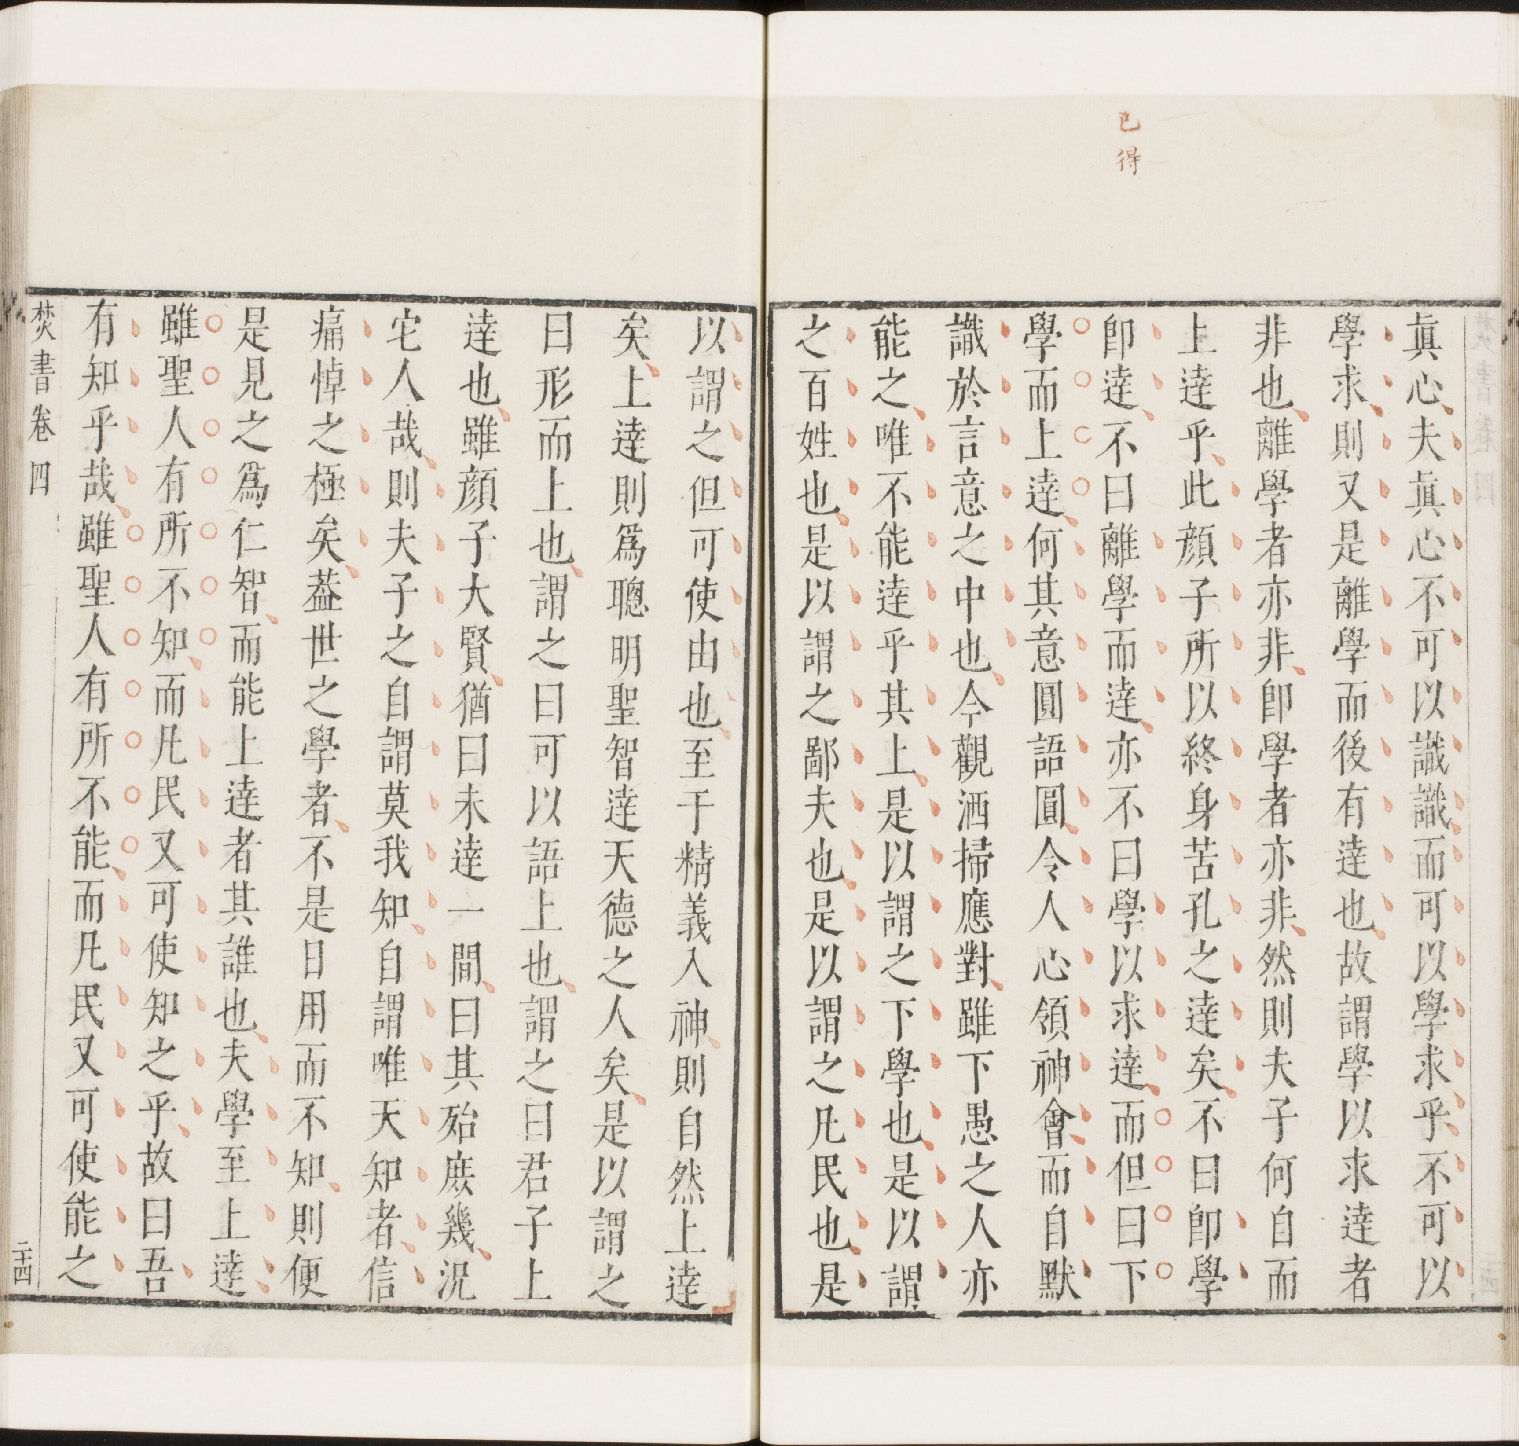 已得
眞心夫眞心不可以識識而可以學求乎不可以
學求則又是離學而後有達也故謂學以求達者
非也離學者亦非卽學者亦非然則夫子何自而
上達乎此顔子所以終身苦孔之達矣不曰卽學
卽達不曰離學而達亦不曰學以求達而但曰下
學而上達何其意圓語圓令人心領神會而自默
識於言意之中也今觀洒掃應對雖下愚之人亦
能之唯不能達乎其上是以謂之下學也是以謂
之百姓也是以謂之鄙夫也是以謂之凡民也是
以謂之但可使由也至于精義入神則自然上達
矣上達則爲聰明聖智達天德之人矣是以謂之
曰形而上也謂之曰可以語上也謂之曰君子上
達也雖顔子大賢猶曰未達一間曰其殆庶幾況
宅人哉則夫子之自謂莫我知自謂唯天知者信
痛悼之極矣葢世之學者不是日用而不知則便
是見之爲仁智而能上達者其誰也夫學至上達
雖聖人有所不知而凡民又可使知之乎故曰吾
有知乎哉雖聖人有所不能而凡民又可使能之
焚書卷四
二十四